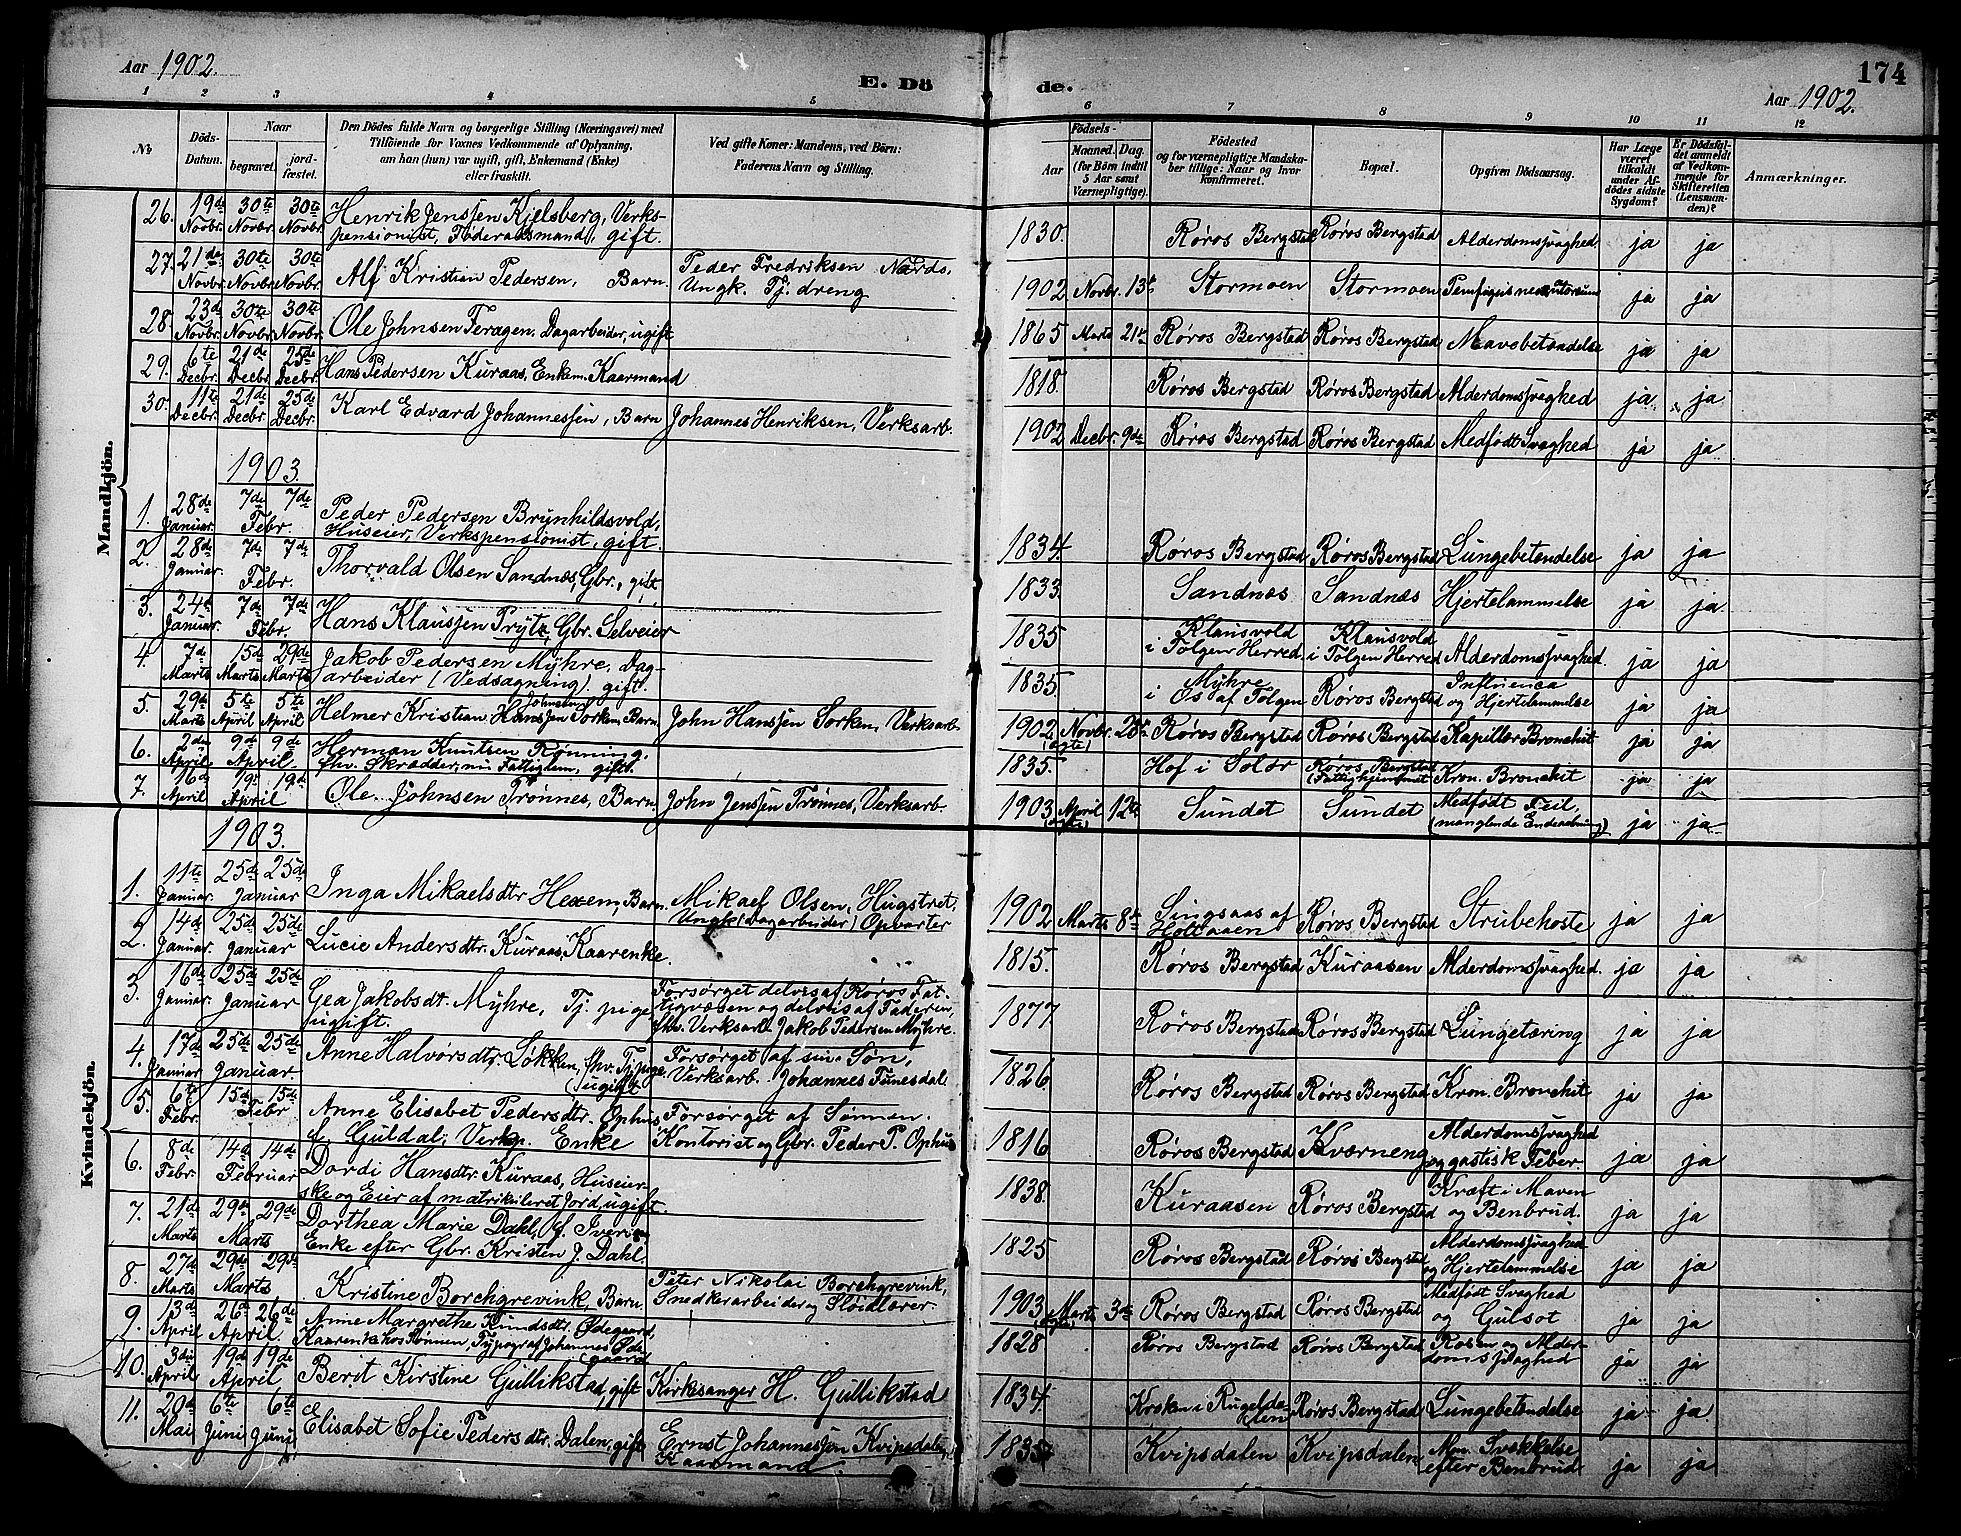 Aar 1902.
E. Dö
de.
174
Aar 1902.
1 2 3 4 5 6 7 8 9 10 11 12
№
Döds-
Datum.
Naar
begravet.
jord-
fæstet.
Den Dödes fulde Navn og borgerlige Stilling (Næringsvei) med
Tilföiende for Voxnes Vedkommende af Oplysning,
om han (hun) var ugift, gift, Enkemand (Enke)
eller fraskilt.
Ved gifte Koner: Mandens, ved Börn:
Faderens Navn og Stilling.
Födsels-
Aar
Maaned. Dag.
(for Börn indtil
5 Aar samt
Værnepligtige).
Födested
og for værnepligtige Mandska-
ber tillige: Naar og hvor
konfirmeret.
Bopæl.
Opgiven Dödsaarsag.
Har Læge
været
tilkaldt
under Af-
dödes sidste
Sygdom?
Er Dödsfal-
det anmeldt
af Vedkom-
mende for
Skifteretten
(Lensman-
den)?
Anmærkninger.
Mandkjön.
26. 19de Novbr. 30te Novbr. 30te Novbr. Henrik Jenssen Kjelsberg, Verks-
pensionist, Föderaadsmand, gift. 1830. Röros Bergstad Röros Bergstad Alderdomssvaghed ja ja
27. 21de Novbr. 30te Novbr. 30te Novbr. Alf Kristian Pedersen, Barn. Peder Fredriksen
Ungk. Tj. dreng 1902 Novbr. 13de Stormoen Stormoen Pemfigus neonatorum ja ja
28. 23de Novbr. 30te Novbr. 30te Novbr. Ole Johnsen Feragen, Dagarbeider, ugift 1865 Marts 21de Röros Bergstad Röros Bergstad Mavebetændelse ja ja
29. 6te Decbr. 21de Decbr. 25de Decbr. Hans Pedersen Kuraas, Enkem. Kaarmand 1818. Röros Bergstad Röros Bergstad Alderdomssvaghed ja ja
30. 11te Decbr. 21de Decbr. 25de Decbr. Karl Edvard Johannessen, Barn Johannes Henriksen, Verksarb. 1902 Decbr. 9de Röros Bergstad Röros Bergstad Medfödt Svaghed ja ja
1903.
1. 28de Januar. 7de 7de Febr. Peder Pedersen Brynhildsvold,
Huseier, Verkspensionist, gift. 1834. Röros Bergstad Röros Bergstad Lungebetændelse ja ja
2. 28de Januar. 7de 7de Febr. Thorvald Olsen Sandnæs, Gbr., gift 1833. Sandnæs Sandnæs Hjertelammelse ja ja
3. 24de Januar. 7de 7de Febr. Hans Klaussen Prytz, Gbr. Selveier 1835 Klausvold
i Tolgen Herred Klausvold
i Tolgen Herred Alderdomssvaghed ja ja
4. 7de Marts 15de Marts 29de Marts Jakob Pedersen Myhre, Dag-
arbeider (Vedsagning). gift. 1835. Myhre
i Os af Tolgen Röros Bergstad Influenca
og Hjertelammelse ja ja
5. 29de Marts 5te April 5te April Helmer Kristian Johnsen Sorken, Barn John Hanssen Sorken, Verksarb. 1902 (ægte) Novbr. 28de Röros Bergstad Röros Bergstad Kapillær Bronchit ja ja
6. 2den April 9de 9de April. Herman Knutsen Rönning,
fhv. Skrædder, nu Fattiglem, gift. 1835. Hof i Solör Röros Bergstad
(Fattighjemmet) Kron. Bronchit ja ja
7. 16de April 19de 19de April Ole Johnsen Trönnes, Barn John Jenssen Trönnes, Verksarb. 1903 April (ægte) 12te Sundet Sundet Medfödt Feil,
(manglende Endeaabning) ja ja
Kvindekjön.
1903.
1. 11te Januar. 25de 25de Januar Inga Mikaelsdtr Hexem, Barn Mikael Olsen, Hugstret,
Ungk. (dagarbeider) Opvarter 1902 Marts 8de Singsaas af
Holtaalen Röros Bergstad Strubehoste ja ja
2. 14de Januar. 25de 25de Januar Lucie Andersdtr. Kuraas, Kaarenke. 1815. Röros Bergstad Kuraasen Alderdomssvaghed. ja ja
3. 16de Januar. 25de 25de Januar Gea Jakobsdt. Myhre, Tj. pige
ugift. Forsörget delvis af Röros Fat-
tigvæsen og delvis af Faderen,
fhv. Verksarb. Jakob Pedersen Myhre. 1877 Röros Bergstad Röros Bergstad Lungetæring ja ja
4. 17de Januar 25de 25de Januar Anne Halvorsdtr. Løkken, fhv. Tj. pige
(ugift) Forsörget af sin Søn,
Verksarb. Johannes Tunesdal 1826 Röros Bergstad Röros Bergstad Kron. Bronchit ja ja
5. 6te Febr. 15de 15de Febr Anne Elisabet Pedersdtr. Ophus
f. Guldal, Verkp. Enke Forsörget af Sönnen.
Kontorist og Gbr. Peder P. Ophus 1816 Röros Bergstad Kværneng Alderdomssvaghed
og gastisk Feber. ja ja
6. 8de Febr. 14de 14de Februar Dordi Hansdtr. Kuraas, Huseier-
ske og Eier af matrikuleret Jord, ugift. 1838. Kuraasen Röros Bergstad Kræft i Maven
og Benbrud. ja ja
7. 21de Marts 29de 29de Marts Dorthea Marie Dahl, f. Iversen
Enke efter Gbr. Kristen J. Dahl. 1825 Röros Bergstad Röros Bergstad Alderdomssvaghed
og Hjertelammelse ja ja
8. 27de Marts 29de 29de Marts Kristine Borchgrevink, Barn Peter Nikolai Borchgrevink,
Snedkerarbeider og Slöidlærer. 1903 Marts (ægte) 3die Röros Bergstad Röros Bergstad Medfödt Svaghed
og Gulsot ja ja
9. 13de April 26de 26de April Anne Margrethe Knudsdtr. Ødegaard,
Kaarenke hos Sønnen, Typograf Johannes Øde-
gaard 1828 Röros Bergstad Röros Bergstad Rosen og Alder-
domssvaghed ja ja
10. 3die April 19de 19de April Berit Kirstine Gullikstad, gift Kirkesanger H. Gullikstad 1834 Kroken i Rugelda-
len Röros Bergstad Lungebetændelse ja ja
11. 20de Mai 6te Juni 6te Juni Elisabet Sofie Pedersdtr. Dalen, gift Ernst Johannessen Kvipsdalen,
Kaarmand 1835 Kvipsdalen Kvipsdalen Alm. Svækkelse
efter Benbrud ja ja